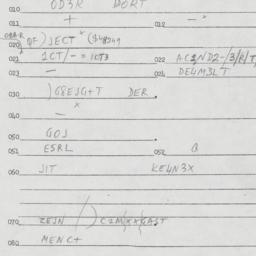 010 OD3R DORT
011 + 012 -
020 QF)JECT ($48249
021 1CT/-= 10T3 022 AC2ND2-/3/R/T
023 - 024 DE4M3LT
030 )G8EJG+T DER.
x
040 -
050 GOJ
051 ESRL 052 Q
060 JIT KE4N3X
070 ZEJN /)C2M/XXGAST
080 MENC+